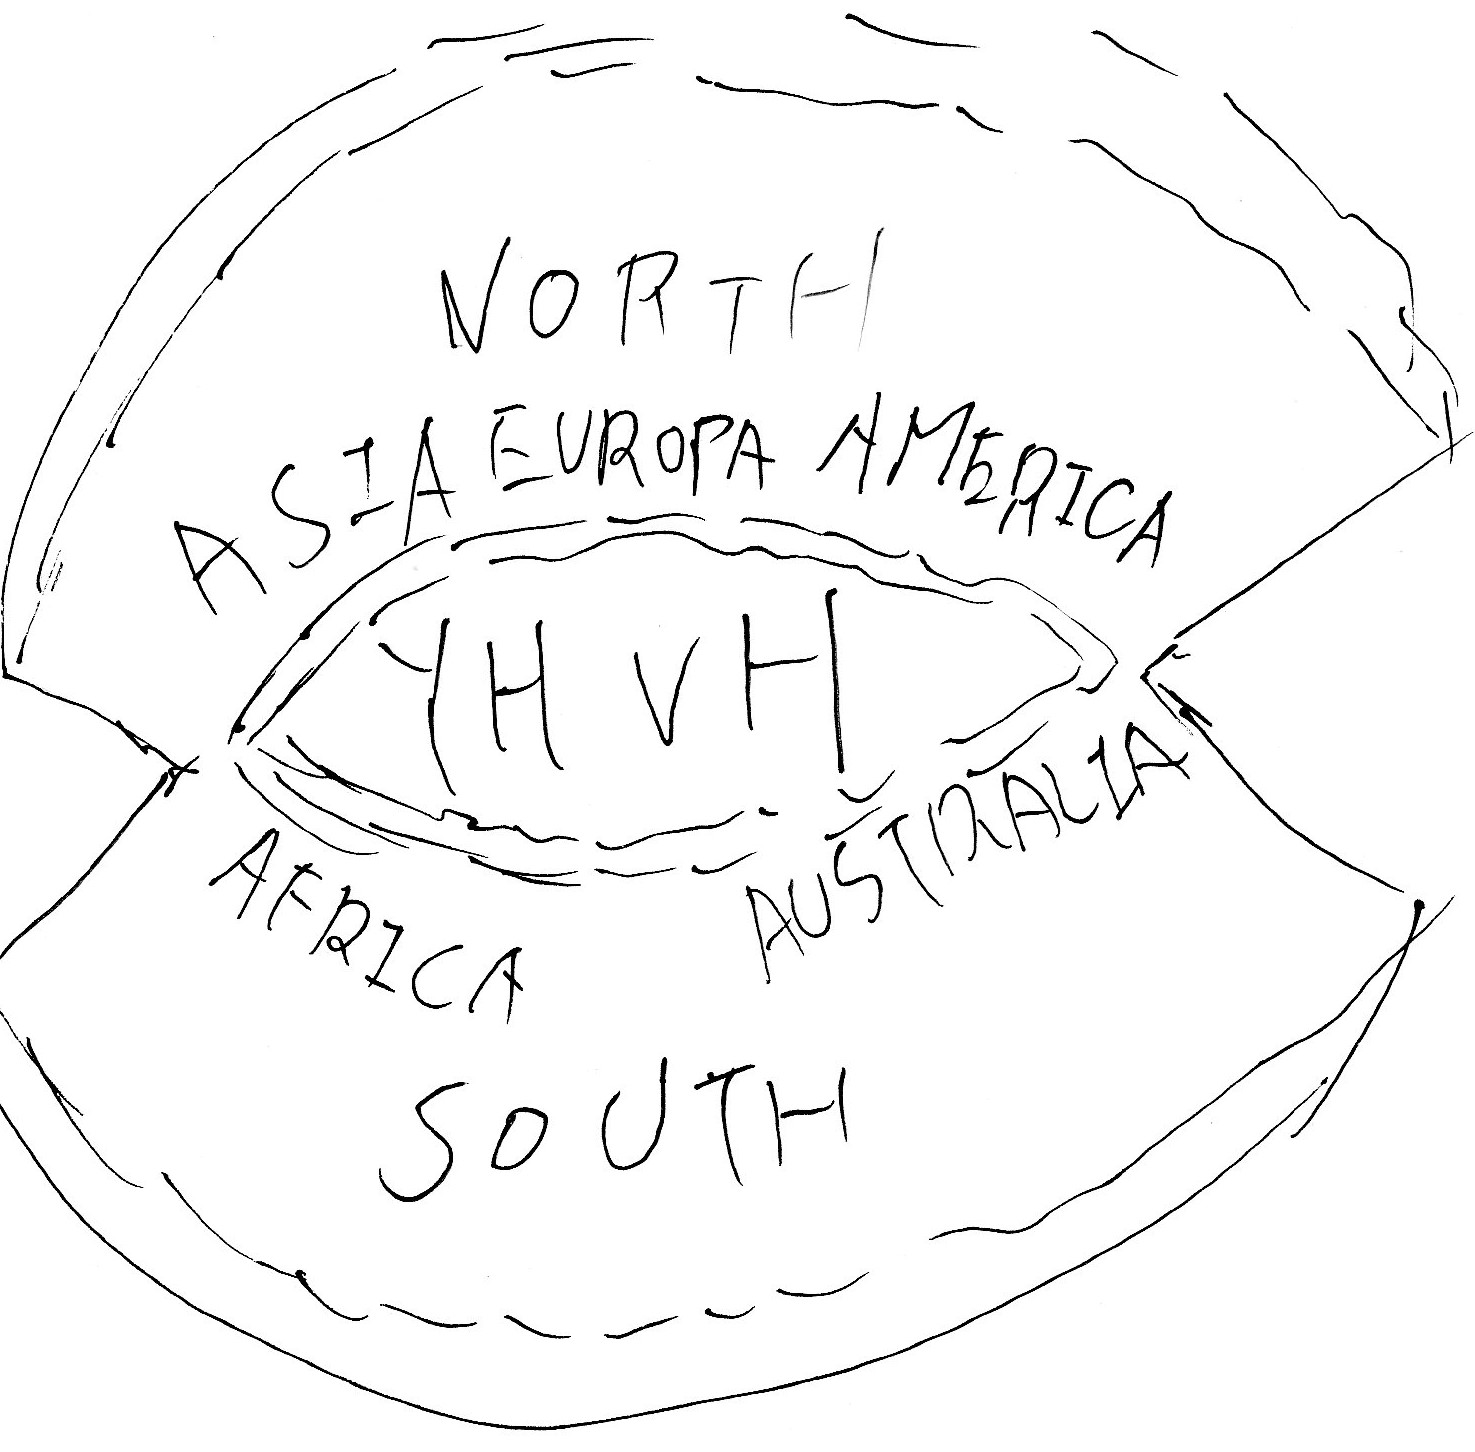 NORTH
ASIA EUROPA AMERICA
YHVH
AFRICA AUSTRALIA
SOUTH